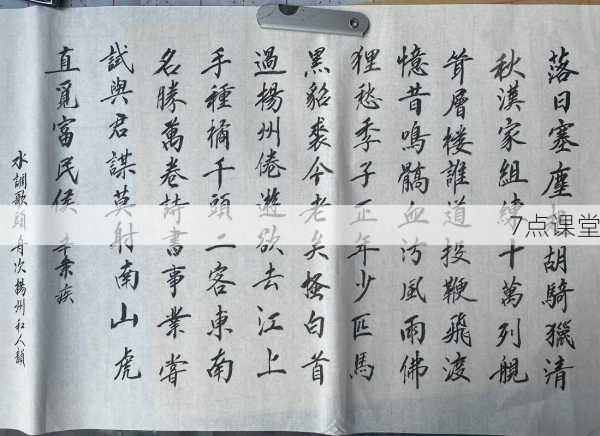 落日塞塵起胡騎獵清
秋漢家組練十萬列艦
聳層樓誰道投鞭飛渡
憶昔鳴髇血污風雨佛
狸愁季子正年少匹馬
黑貂裘今老矣搔白首
過揚州倦遊欲去江上
手種橘千頭二客東南
名勝萬卷詩書事業嘗
試與君謀莫射南山虎
直覓富民侯 辛棄疾
水調歌頭舟次揚州和人韻
7点课堂